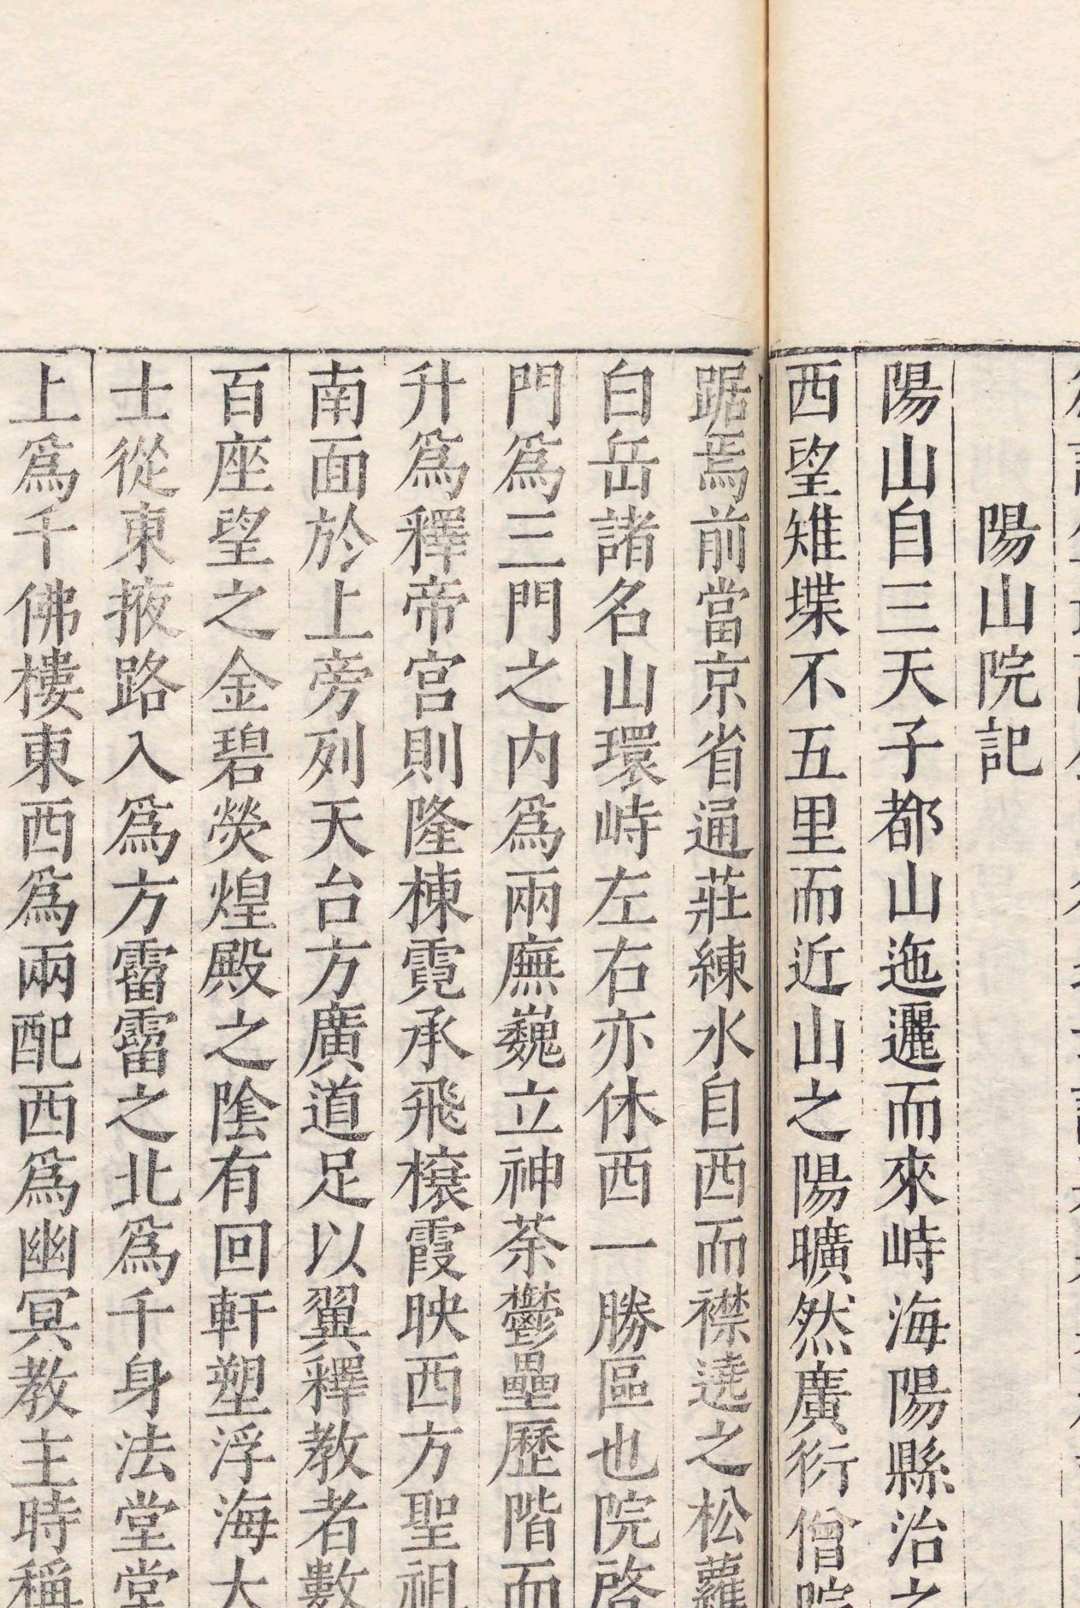 陽山院記
陽山自三天子都山迤邐而來峙海陽縣治之
西望雉堞不五里而近山之陽曠然廣衍僧院
踞焉前當京省通莊練水自西而襟遶之松蘿
白岳諸名山環峙左右亦休西一勝區也院啓
門爲三門之内爲兩廡巍立神荼鬱壘歷階而
升爲釋帝宮則隆棟霓承飛榱霞映西方聖祖
南面於上旁列天台方廣道足以翼釋教者數
百座望之金碧熒煌殿之陰有回軒塑浮海大
士從東掖路入爲方霤霤之北爲千身法堂堂
上爲千佛樓東西爲兩配西爲幽冥教主時稱